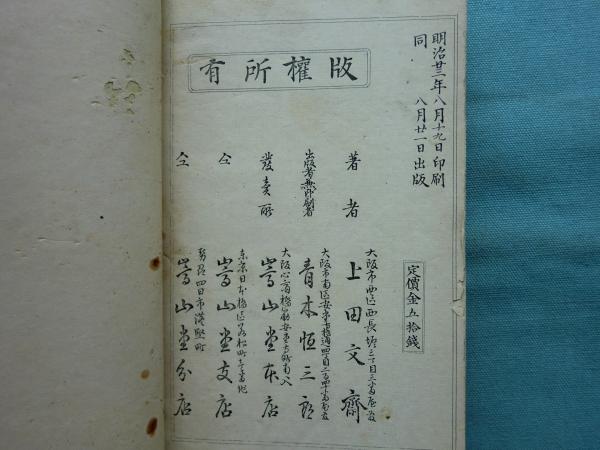 明治廿三年八月十九日印刷
同 八月廿一日出版
版權所有
定價金五拾錢
大阪市西區西長堀
著者 上田文齋
大阪市南區安堂寺橋通四丁目
出版者兼印刷者 青木恒三郎
大阪心斎橋筋安堂寺町南へ入
發賣所 嵩山堂本店
東京日本橋區
仝 嵩山堂支店
勢州四日市港竪町
仝 嵩山堂分店